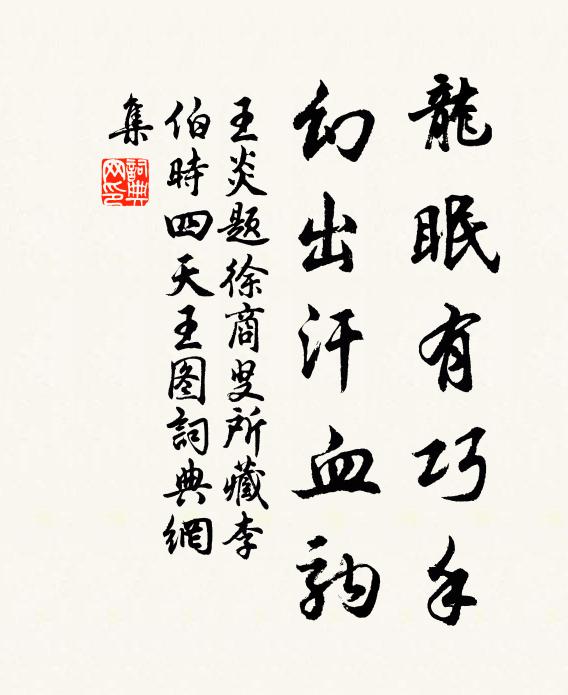 龍眠有巧手
幻出汗血駒
王炎题徐商叟所藏李
伯時四天王图詞典網
集
詞典
网印